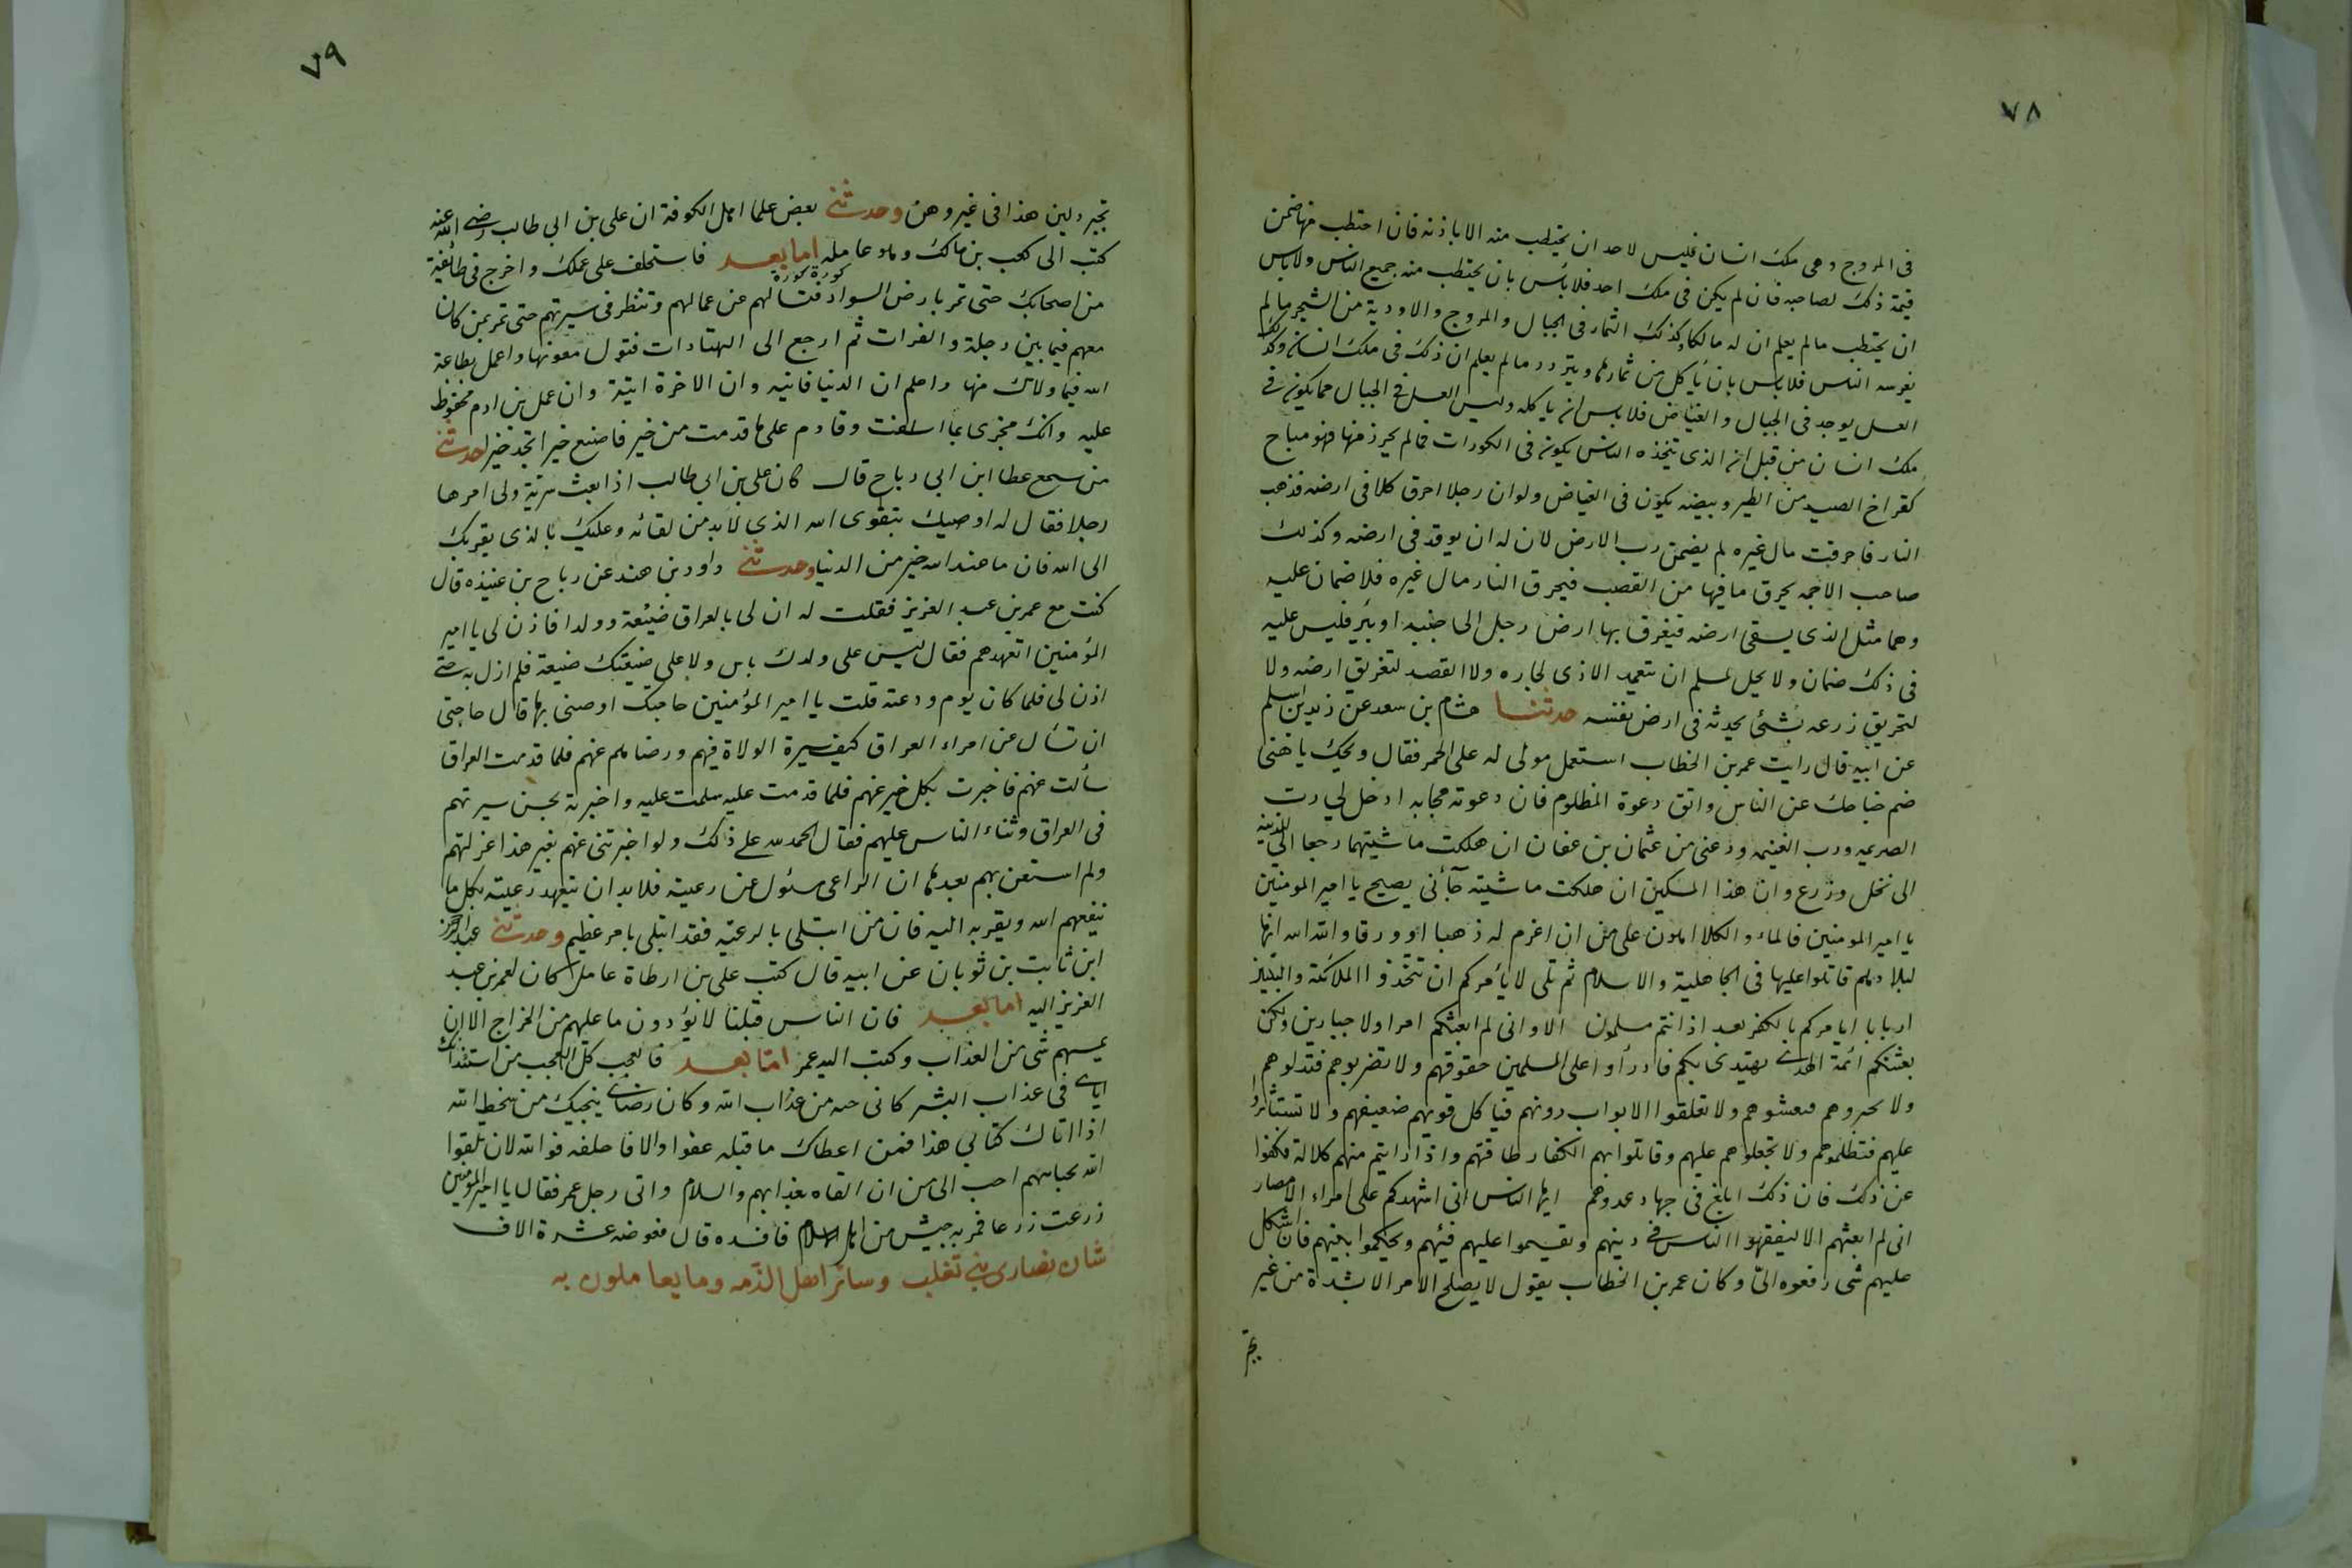 ٧٨
فى المروج وهى ملك انسان فليس لاحد ان يحتطب منه الا باذنه فان احتطب منها ضمن
قيمة ذلك لصاحبه فان لم يكن فى ملك احد فلا بأس بان يحتطب منه جميع الناس ولا باس
ان يحتطب مالم يعلم ان له مالكا وكذلك الثمار فى الجبال والمروج والاودية من الشجر مالم
يغرسه الناس فلا باس بان ياكل من ثمارها ويتزود مالم يعلم ان ذلك فى ملك انسان وكذلك
العسل يوجد فى الجبال والغياض فلا باس ان ياكله وليس العسل فى الجبال مما يكون فى
ملك انسان من قبل ان الذى يتخذه الناس يكون فى الكورات فمالم يحرز منها فهو مباح
كفراخ الصيد من الطير وبيضه يكون فى الغياض ولو ان رجلا احرق كلا فى ارضه فذهب
النار فاحرقت مال غيره لم يضمن رب الارض لان له ان يوقد فى ارضه وكذلك
صاحب الاجمه يحرق ما فيها من القصب فيحرق النار مال غيره فلا ضمان عليه
وهما مثل الذى يسقى ارضه فيغرق بها ارض رجل الى جنبه او بئر فليس عليه
فى ذلك ضمان ولا يحل لمسلم ان يتعمد الاذى لجاره ولا القصد لتغريق ارضه ولا
لتحريق زرعه بشئ يحدثه فى ارض نفسه حدثنا هشام بن سعد عن زيد بن اسلم
عن ابيه قال رايت عمر بن الخطاب استعمل مولى له على الحمر فقال ويحك يا هنى
ضم جناحك عن الناس واتق دعوة المظلوم فان دعوته مجابه ادخل لى رب
الصريمه ورب الغنيمه ودعنى من عثمان بن عفان ان هلكت ماشيتهما رجعا الى المدينه
الى نخل وزرع وان هذا المسكين ان هلكت ماشيته جآئنى يصيح يا امير المومنين
يا امير المومنين فالماء والكلا اهون على من ان اغرم له ذهبا او ورقا والله الله انها
لبلادهم قاتلوا عليها فى الجاهلية والاسلام ثم تلى لا يأمركم ان تتخذوا الملائكة والنبيين
اربابا ايامركم بالكفر بعد اذ انتم مسلمون الا وانى لم ابعثكم امرا ولا جبارين ولكن
بعثتكم ائمة الهدى يهتدى بكم فادرأوا على المسلمين حقوقهم ولا تضربوهم فتذلوهم
ولا تحمروهم فتفتنوهم ولا تغلقوا الابواب دونهم فياكل قويهم ضعيفهم ولا تستئاثروا
عليهم فتظلموهم ولا تجهلوا عليهم وقاتلوا بهم الكفار طاقتهم واذا رايتم منهم كلالة فكفوا
عن ذلك فان ذلك ابلغ فى جهاد عدوهم ايها الناس انى اشهدكم على امراء الامصار
انى لم ابعثهم الا ليفقهوا الناس فى دينهم ويقسموا عليهم فيئهم ويحكموا بينهم فان اشكل
عليهم شى رفعوه الىّ وكان عمر بن الخطاب يقول لا يصلح الامر الا بشدة من غير
تجبر
٧٩
تجبر ولين هذا فى غير وهن وحدثنى بعض علما اهل الكوفة ان على بن ابى طالب رضى الله عنه
كتب الى كعب بن مالك وهو عامله اما بعد فاستخلف على عملك واخرج فى طائفة
من اصحابك حتى تمر بارض السواد كورة كورة فتسالهم عن عمالهم وتنظر فى سيرتهم حتى تمر بمن كان
معهم فيما بين دجلة والفرات ثم ارجع الى البهقباذات فتول معونتها واعمل بطاعة
الله فيما ولاك منها واعلم ان الدنيا فانيه وان الاخرة اتية وان عمل بن ادم محفوظ
عليه وانك مجزى بما اسلفت وقادم على ما قدمت من خير فاصنع خيرا تجد خيرا حدثنى
من سمع عطا ابن ابى رباح قال كان على بن ابى طالب اذا بعث سرية ولى امرها
رجلا فقال له اوصيك بتقوى الله الذى لابد من لقائه وعليك بالذى يقربك
الى الله فان ما عند الله خير من الدنيا وحدثنى داود بن هند عن رباح بن عبيده قال
كنت مع عمر بن عبد العزيز فقلت له ان لى بالعراق ضيعة وولدا فاذن لى يا امير
المؤمنين اتعهدهم فقال ليس على ولدك باس ولا على ضيعتك ضيعة فلم ازل به حتى
اذن لى فلما كان يوم ودعته قلت يا امير المؤمنين حاجتك اوصنى بها قال حاجتى
ان تسأل عن امراء العراق كيف سيرة الولاة فيهم ورضاهم عنهم فلما قدمت العراق
سألت عنهم فاخبرت بكل خير عنهم فلما قدمت عليه سلمت عليه واخبرته بحسن سيرتهم
فى العراق وثناء الناس عليهم فقال الحمد لله على ذلك ولو اخبرتنى عنهم بغير هذا عزلتهم
ولم استعن بهم بعدها ان الراعى مسئول عن رعيته فلابد ان يتعهد رعيته بكل ما
ينفعهم الله ويقربه اليه فان من ابتلى بالرعيه فقد ابتلى بامر عظيم وحدثنى عبد الرحمن
ابن ثابت بن ثوبان عن ابيه قال كتب على بن ارطاة عامل كان لعمر بن عبد
العزيز اليه اما بعد فان الناس قبلنا لا يؤدون ما عليهم من الخراج الا ان
يمسهم شى من العذاب وكتب اليه عمر اما بعد فالعجب كل العجب من استئذانك
اياى فى عذاب البشر كانى جنه من عذاب الله وكان رضاى ينجيك من سخط الله
اذا اتاك كتابى هذا فمن اعطاك ما قبله عفوا والا فاحلفه فوالله لان يلقوا
الله بجناياتهم احب الى من ان القاه بعذابهم والسلام واتى رجل عمر فقال يا امير المؤمنين
زرعت زرعا فمر به جيش من اهل الشام فافسده قال فعوضه عشرة الاف
شان نصارى بنى تغلب وسائر اهل الذمه وما يعاملون به